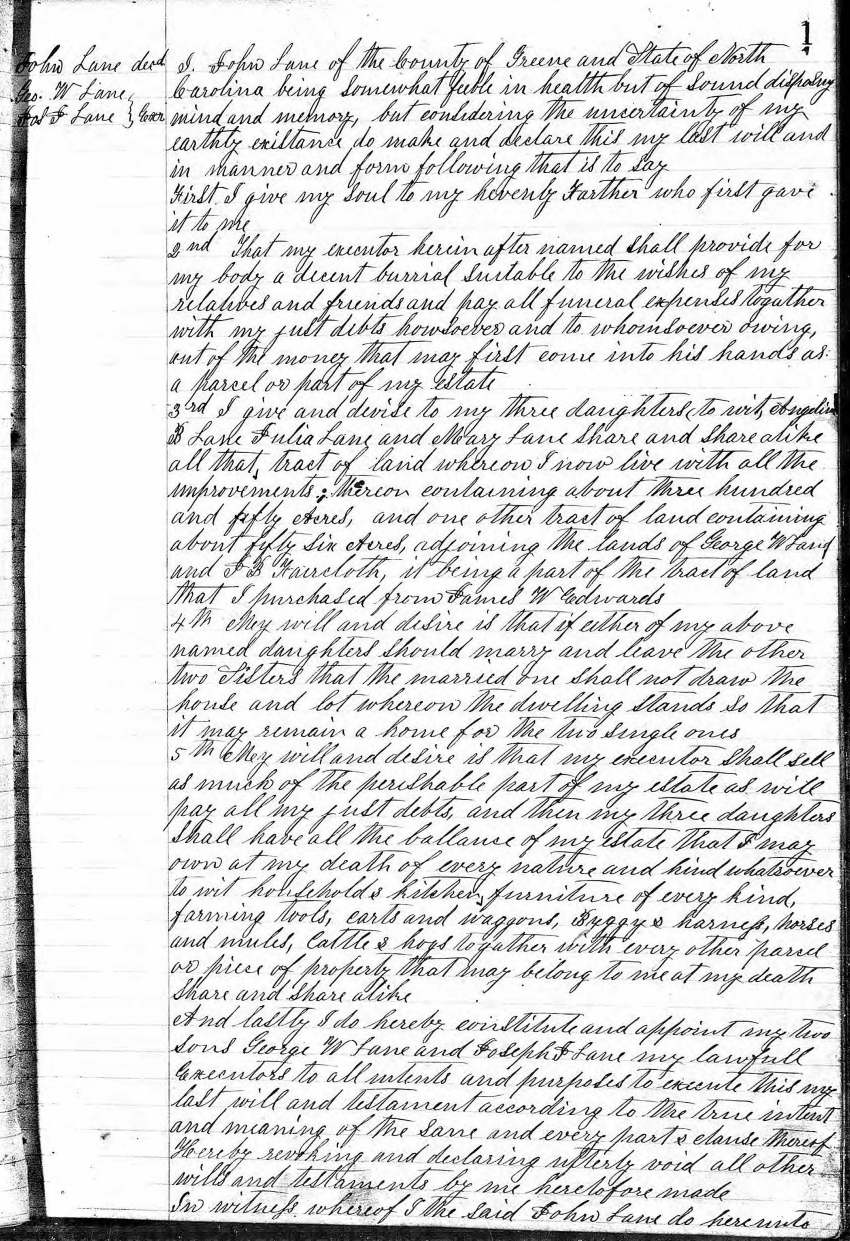 1
John Lane decd
Geo. W Lane
Jos F Lane } Exer
I. John Lane of the County of Greene and State of North
Carolina being somewhat feble in health but of sound disposing
mind and memory, but considering the uncertainty of my
earthly existance do make and declare this my last will and
in manner and form following that is to say
First. I give my soul to my hevenly Farther who first gave
it to me
2nd That my executor herein after named shall provide for
my body a decent burrial suitable to the wishes of my
relatives and friends and pay all funeral expenses togather
with my just debts howsoever and to whomsoever owing,
out of the money that may first come into his hands as
a parcel or part of my estate
3rd I give and devise to my three daughters, to wit, Angelina
B Lane Julia Lane and Mary Lane share and share alike
all that, tract of land whereon I now live with all the
improvements; thereon containing about three hundred
and fifty Acres, and one other tract of land containing
about fifty six Acres, adjoining the lands of George W Lane
and J B Faircloth, it being a part of the tract of land
that I purchased from James W Edwards
4th My will and desire is that if either of my above
named daughters should marry and leave the other
two Sisters that the married one shall not draw the
house and lot whereon the dwelling stands so that
it may remain a home for the two single ones
5th My will and desire is that my executor shall sell
as much of the perishable part of my estate as will
pay all my just debts, and then my three daughters
shall have all the ballance of my estate that I may
own at my death of every nature and kind whatsoever
to wit household & kitchen furniture of every kind,
farming tools, carts and waggons, Byggy & harness, horses
and mules, Cattle & hogs togather with every other parcel
or piece of property that may belong to me at my death
share and share alike
And lastly I do hereby constitute and appoint my two
sons George W Lane and Joseph F Lane my lawfull
Executors to all intents and purposes to execute this my
last will and testament according to the true intent
and meaning of the same and every part & clause thereof
Hereby revoking and declaring utterly void all other
wills and testaments by me heretofore made
In witness whereof I the said John Lane do hereunto